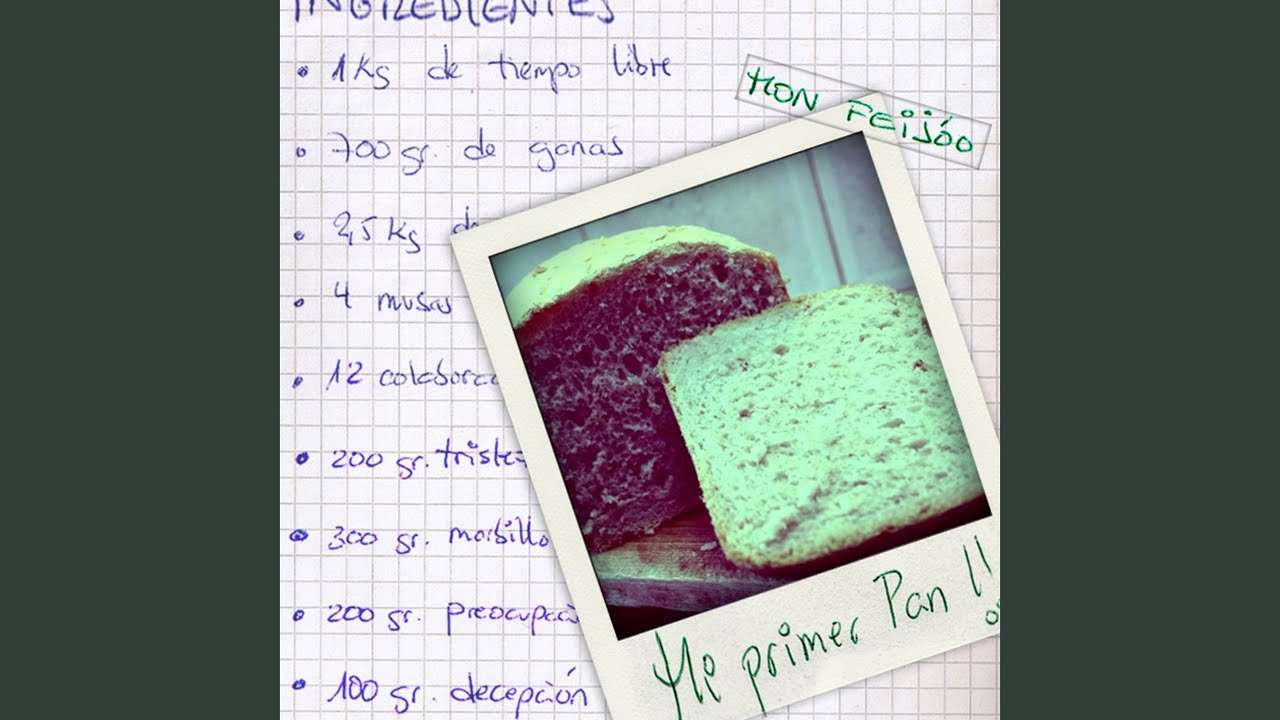 INGREDIENTES
• 1Kg de tiempo libre
• 700 gr. de ganas
• 2,5 Kg de
• 4 musas
• 12 colabora
• 200 gr. triste
• 300 gr. morbillo
• 200 gr. preocupació
• 100 gr. decepción
MON FEIJÓO
Mi primer Pan !!